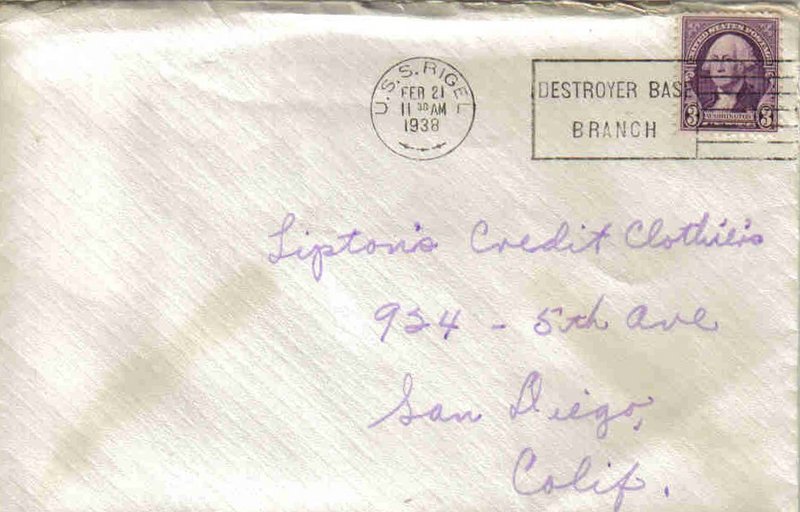 U.S.S. RIGEL
FEB 21
11 30 AM
1938
DESTROYER BASE
BRANCH
UNITED STATES POSTAGE
3 WASHINGTON 3
Lipton's Credit Clothiers
924 - 5th Ave
San Diego,
Calif.